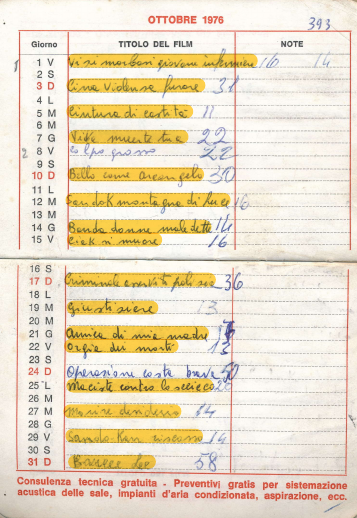 OTTOBRE 1976
393
Giorno TITOLO DEL FILM NOTE
1 V Visi morbosi giovane infermiera 16 14
2 S
3 D Cina violenza furore 31
4 L
5 M Cintura di castità 11
6 M
7 G Vita tua 22
2 8 V Colpo grosso 22
9 S
10 D Bello come arcangelo 30
11 L
12 M Sandok montagna di luce 16
13 M
14 G Banda donne maledette 14
15 V Ciak si muore 16
16 S
17 D Criminale 36
18 L
19 M Giustiziere 13
20 M
21 G Amica di mia madre
22 V Orgia dei morti 13
23 S
24 D Operazione costa brava 50
25 L Maciste contro lo sceicco
26 M
27 M 14
28 G
29 V riscossa 14
30 S
31 D Lee 58
Consulenza tecnica gratuita - Preventivi gratis per sistemazione
acustica delle sale, impianti d'aria condizionata, aspirazione, ecc.